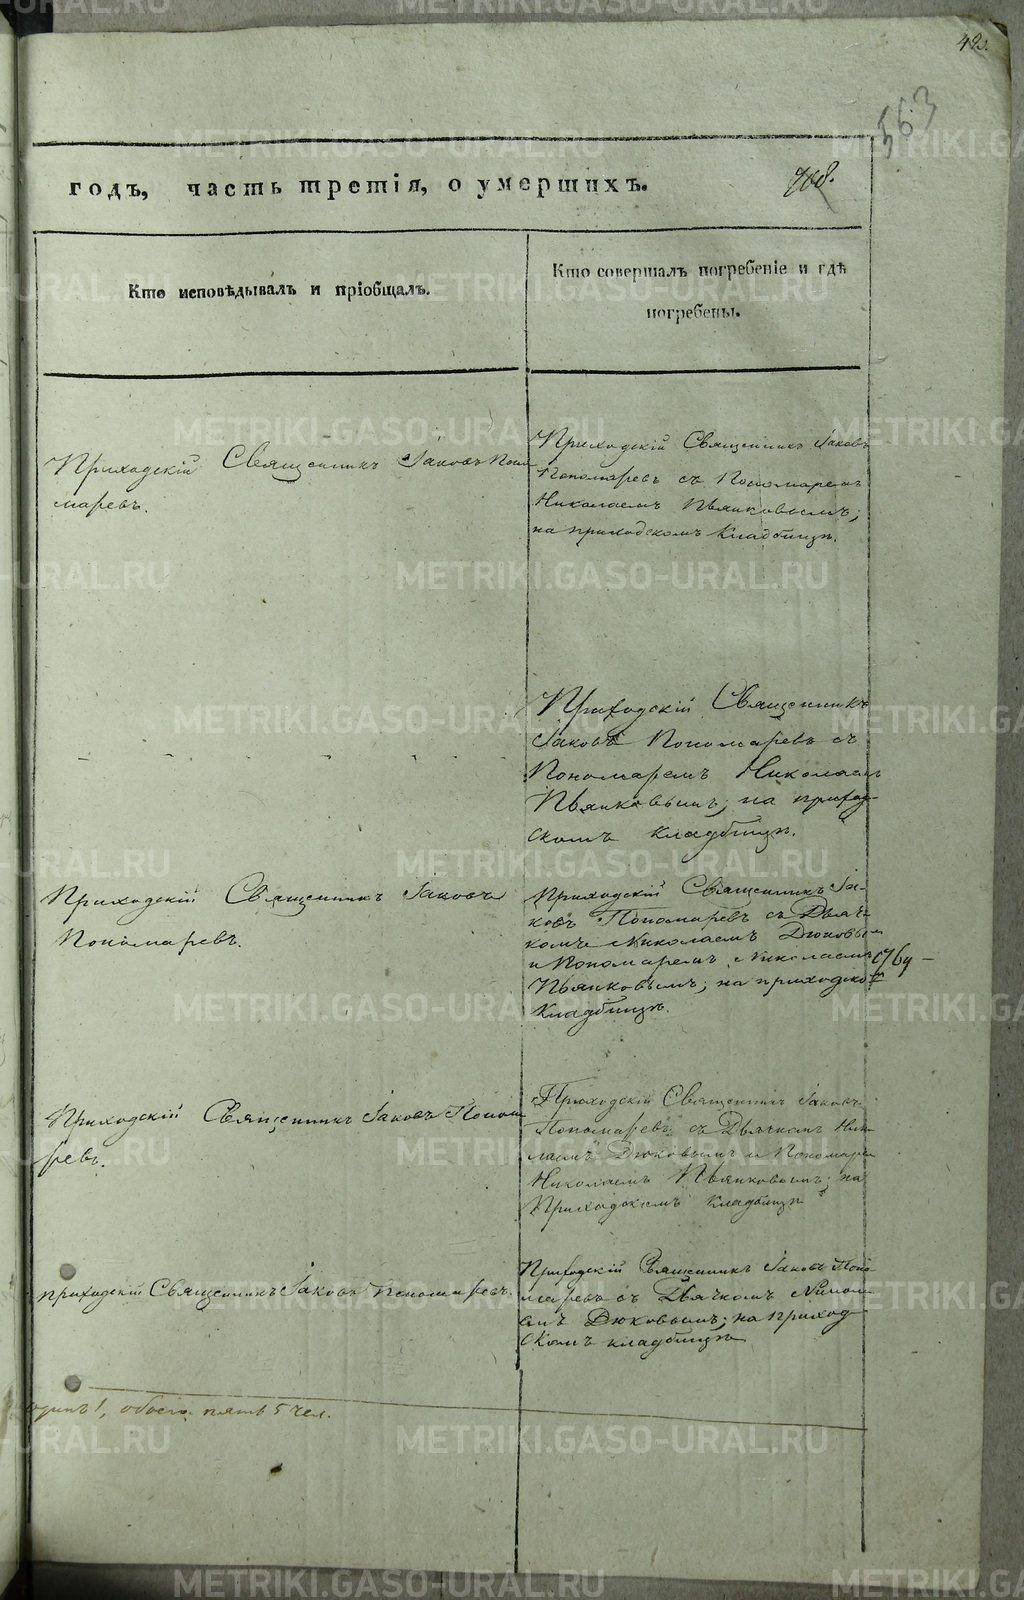 563
годъ, часть третія, о умершихъ.
Кто исповѣдывалъ и пріобщалъ.
Кто совершалъ погребеніе и гдѣ
погребены.
Приходскій Священникъ Іаковъ Поно
маревъ.
Приходскій Священникъ Іаковъ
Пономаревъ съ Пономаремъ
Николаемъ Пьянковымъ;
на приходскомъ кладбищѣ.
Приходскій Священникъ
Іаковъ Пономаревъ съ
Пономаремъ Николаемъ
Пьянковымъ; на приход
скомъ кладбищѣ.
Приходскій Священникъ Іаковъ
Пономаревъ.
Приходскій Священникъ Іа-
ковъ Пономаревъ съ Дьяч
комъ Николаемъ Дюковым
и Пономаремъ Николаемъ
Пьянковымъ; на приходском
кладбищѣ.
Приходскій Священникъ Іаковъ Понома
ревъ.
Приходскій Священникъ Іаковъ
Пономаревъ съ Дьячкомъ Нико
лаемъ Дюковымъ и Пономарем
Николаемъ Пьянковымъ; на
Приходскомъ кладбищѣ
приходскій Священникъ Іаковъ Пономаревъ.
Приходскій Священникъ Іаковъ Поно
маревъ съ Дьячкомъ Никола
емъ Дюковымъ; на приход
скомъ кладбищѣ
одинъ 1, обоего пять 5 чел.
METRIKI.GASO-URAL.RU